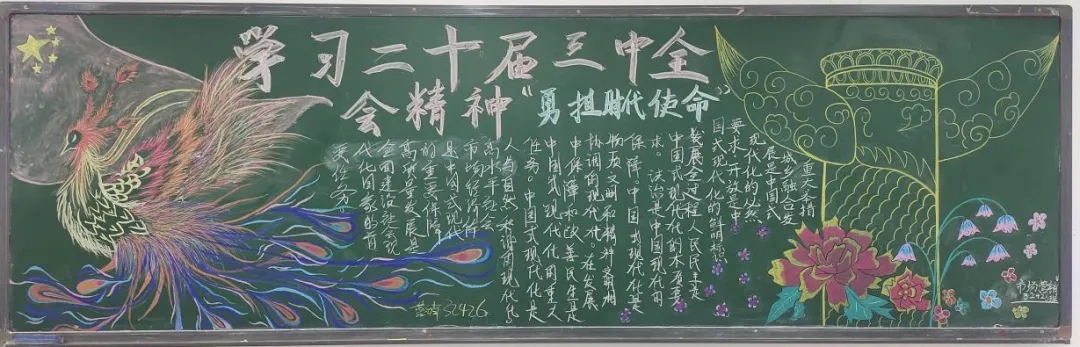 学习二十届三中全
会精神“勇担时代使命”
城乡融合发
展是中国式
现代化的必然
要求。开放是中
国式现代化的鲜明标识
发展全过程人民民主是
中国式现代化的本质要
求。法治是中国现代的
保障中国式现代化是
物质文明和精神文明相
协调的现代化。在发展
中保障和改善民生是
中国式现代化的重大
任务。中国式现代化是
人与自然和谐的现代化
高水平社会
市场经济体
是中国式现代
的重要保障
高质量发展是
全面建设社会现
代化国家的首
要任务
32426
市场营销